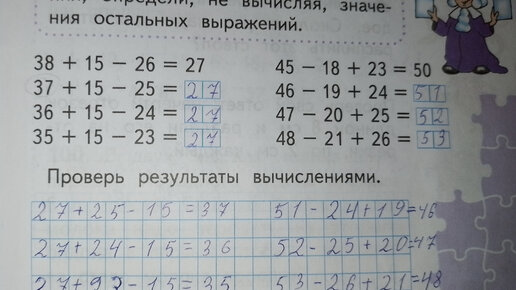 нии, определи, не вычисляя, значе-
ния остальных выражений.
38 + 15 − 26 = 27
37 + 15 − 25 = 27
36 + 15 − 24 = 27
35 + 15 − 23 = 27
45 − 18 + 23 = 50
46 − 19 + 24 = 51
47 − 20 + 25 = 52
48 − 21 + 26 = 53
Проверь результаты вычислениями.
27+25−15=37 51−24+19=46
27+24−15=36 52−25+20=47
27+23−15=35 53−26+21=48